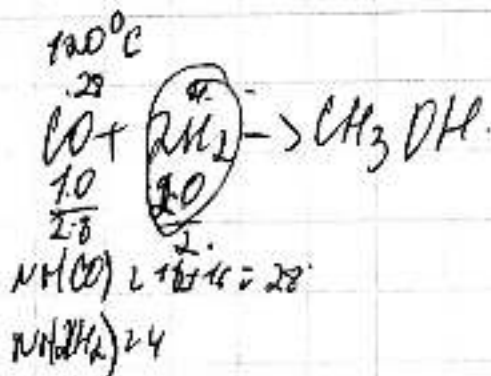 120⁰C
.28 4.
CO + 2H₂ -> CH₃OH.
1.0 2.0
2.8 2.
M(CO) = 16+16 = 28
M(2H₂) = 4